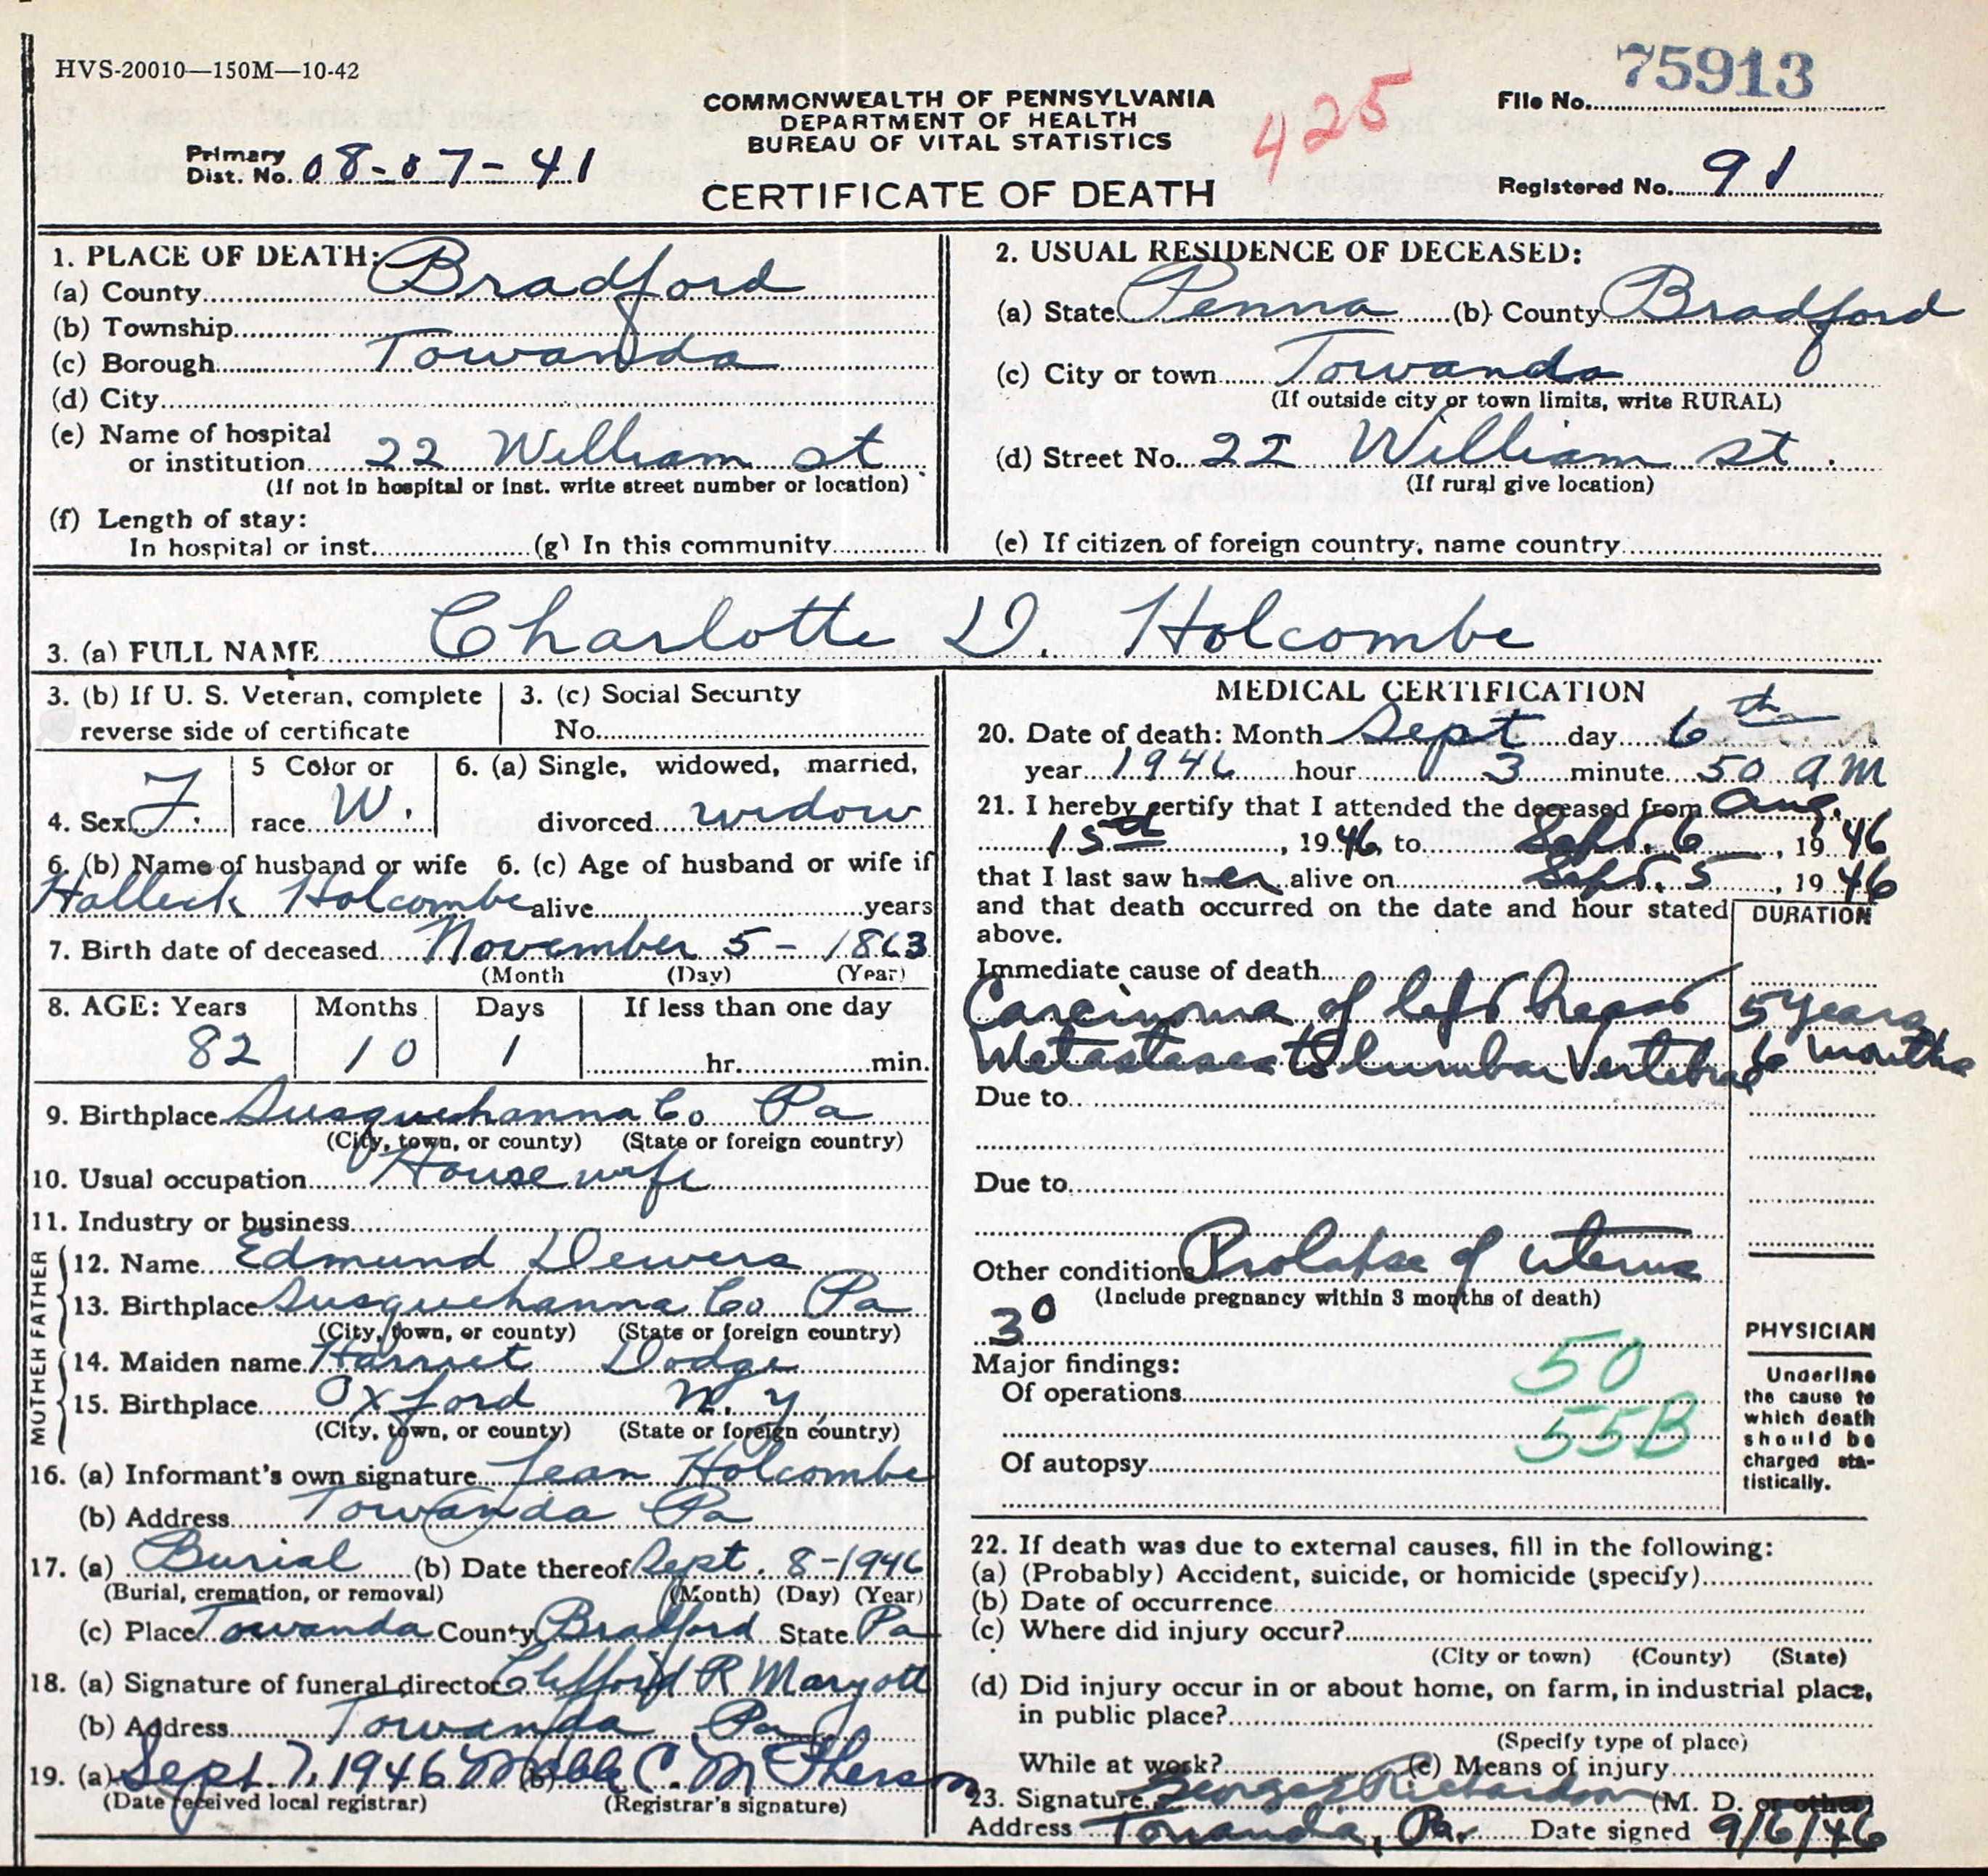 HVS-20010—150M—10-42
75913
COMMONWEALTH OF PENNSYLVANIA
DEPARTMENT OF HEALTH
BUREAU OF VITAL STATISTICS
425
File No.
Primary
Dist. No. 08-07-41
CERTIFICATE OF DEATH
Registered No. 91
1. PLACE OF DEATH:
(a) County Bradford
(b) Township
(c) Borough Towanda
(d) City
(e) Name of hospital
or institution 22 William st
(If not in hospital or inst. write street number or location)
(f) Length of stay:
In hospital or inst. (g) In this community
2. USUAL RESIDENCE OF DECEASED:
(a) State Penna (b) County Bradford
(c) City or town Towanda
(If outside city or town limits, write RURAL)
(d) Street No. 22 William st.
(If rural give location)
(e) If citizen of foreign country, name country
3. (a) FULL NAME Charlotte D. Holcombe
3. (b) If U. S. Veteran, complete
reverse side of certificate
3. (c) Social Security
No.
4. Sex F.
5 Color or
race W.
6. (a) Single, widowed, married,
divorced widow
6. (b) Name of husband or wife 6. (c) Age of husband or wife if
Halleck Holcombe alive years
7. Birth date of deceased November 5 - 1863
(Month (Day) (Year)
8. AGE: Years Months Days If less than one day
82 10 1 hr. min.
9. Birthplace Susquehanna Co Pa
(City, town, or county) (State or foreign country)
10. Usual occupation House wife
11. Industry or business
FATHER
12. Name Edmund Dewers
13. Birthplace Susquehanna Co Pa
(City, town, or county) (State or foreign country)
MOTHER
14. Maiden name Harriet Dodge
15. Birthplace Oxford N. Y.
(City, town, or county) (State or foreign country)
16. (a) Informant's own signature Jean Holcombe
(b) Address Towanda Pa
17. (a) Burial (b) Date thereof Sept. 8-1946
(Burial, cremation, or removal) (Month) (Day) (Year)
(c) Place Towanda County Bradford State Pa
18. (a) Signature of funeral director Clifford R Maryott
(b) Address Towanda Pa
19. (a) Sept. 7, 1946 (b) Mable C. McPherson
(Date received local registrar) (Registrar's signature)
MEDICAL CERTIFICATION
20. Date of death: Month Sept day 6th
year 1946 hour 3 minute 50 AM
21. I hereby certify that I attended the deceased from Aug.
15th, 1946, to Sept. 6, 1946
that I last saw her alive on Sept. 5, 1946
and that death occurred on the date and hour stated
above.
DURATION
Immediate cause of death
Carcinoma of left breast 5 years
Metastases to lumbar Vertebrae 6 months
Due to
Due to
Other conditions Prolapse of uterus
(Include pregnancy within 3 months of death)
3°
Major findings:
Of operations
50
55B
Of autopsy
PHYSICIAN
Underline
the cause to
which death
should be
charged sta-
tistically.
22. If death was due to external causes, fill in the following:
(a) (Probably) Accident, suicide, or homicide (specify)
(b) Date of occurrence
(c) Where did injury occur?
(City or town) (County) (State)
(d) Did injury occur in or about home, on farm, in industrial place,
in public place?
(Specify type of place)
While at work? (e) Means of injury
23. Signature George Richardson (M. D. or other)
Address Towanda, Pa. Date signed 9/6/46